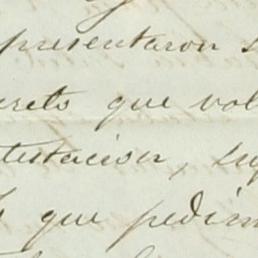 presentaron s
crets que vol
testacion, su
que pedim